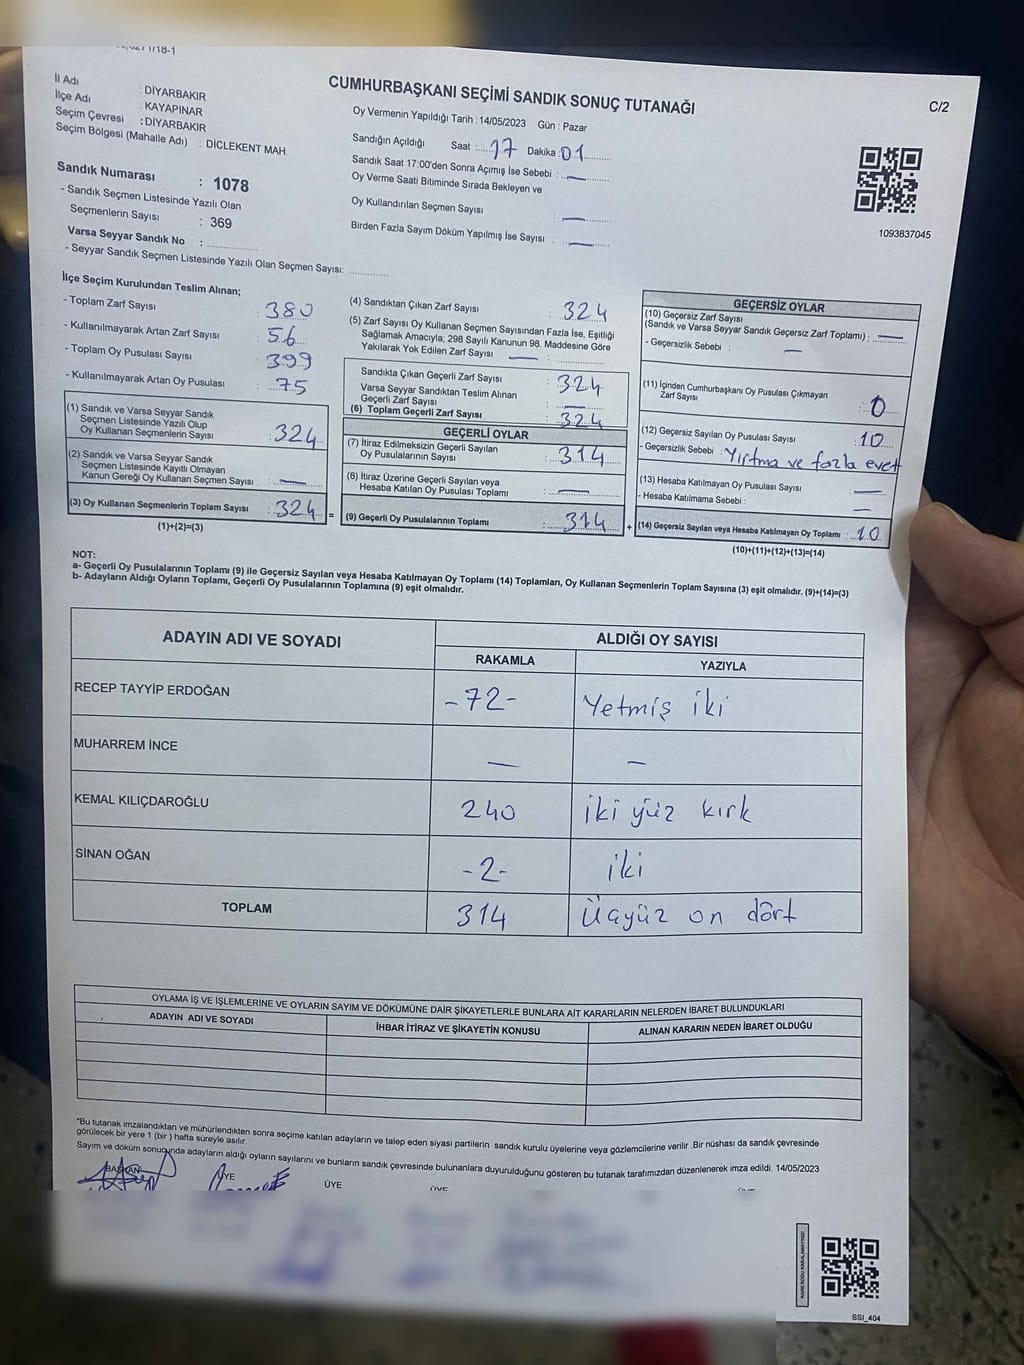 CUMHURBAŞKANI SEÇİMİ SANDIK SONUÇ TUTANAĞI
C/2
İl Adı : DİYARBAKIR
İlçe Adı : KAYAPINAR
Seçim Çevresi : DİYARBAKIR
Seçim Bölgesi (Mahalle Adı) : DİCLEKENT MAH.
Sandık Numarası : 1078
- Sandık Seçmen Listesinde Yazılı Olan
Seçmenlerin Sayısı : 369
Varsa Seyyar Sandık No :
- Seyyar Sandık Seçmen Listesinde Yazılı Olan Seçmen Sayısı:
Oy Vermenin Yapıldığı Tarih : 14/05/2023 Gün : Pazar
Sandığın Açıldığı Saat : 17 Dakika : 01
Sandık Saat 17:00'den Sonra Açımış İse Sebebi : —
Oy Verme Saati Bitiminde Sırada Bekleyen ve
Oy Kullandırılan Seçmen Sayısı : —
Birden Fazla Sayım Döküm Yapılmış İse Sayısı : —
1093837045
İlçe Seçim Kurulundan Teslim Alınan;
- Toplam Zarf Sayısı : 380
- Kullanılmayarak Artan Zarf Sayısı : 56
- Toplam Oy Pusulası Sayısı : 399
- Kullanılmayarak Artan Oy Pusulası : 75
(1) Sandık ve Varsa Seyyar Sandık
Seçmen Listesinde Yazılı Olup
Oy Kullanan Seçmenlerin Sayısı : 324
(2) Sandık ve Varsa Seyyar Sandık
Seçmen Listesinde Kayıtlı Olmayan
Kanun Gereği Oy Kullanan Seçmen Sayısı : —
(3) Oy Kullanan Seçmenlerin Toplam Sayısı : 324 =
(1)+(2)=(3)
(4) Sandıktan Çıkan Zarf Sayısı : 324
(5) Zarf Sayısı Oy Kullanan Seçmen Sayısından Fazla İse, Eşitliği
Sağlamak Amacıyla; 298 Sayılı Kanunun 98. Maddesine Göre
Yakılarak Yok Edilen Zarf Sayısı — :
Sandıkta Çıkan Geçerli Zarf Sayısı : 324
Varsa Seyyar Sandıktan Teslim Alınan
Geçerli Zarf Sayısı : —
(6) Toplam Geçerli Zarf Sayısı : 324
GEÇERLİ OYLAR
(7) İtiraz Edilmeksizin Geçerli Sayılan
Oy Pusulalarının Sayısı : 314
(8) İtiraz Üzerine Geçerli Sayılan veya
Hesaba Katılan Oy Pusulası Toplamı : —
(9) Geçerli Oy Pusulalarının Toplamı : 314 +
GEÇERSİZ OYLAR
(10) Geçersiz Zarf Sayısı
(Sandık ve Varsa Seyyar Sandık Geçersiz Zarf Toplamı) : —
- Geçersizlik Sebebi : —
(11) İçinden Cumhurbaşkanı Oy Pusulası Çıkmayan
Zarf Sayısı : 0
(12) Geçersiz Sayılan Oy Pusulası Sayısı : 10
- Geçersizlik Sebebi : Yırtma ve fazla evet
(13) Hesaba Katılmayan Oy Pusulası Sayısı : —
- Hesaba Katılmama Sebebi : —
(14) Geçersiz Sayılan veya Hesaba Katılmayan Oy Toplamı : 10
(10)+(11)+(12)+(13)=(14)
NOT:
a- Geçerli Oy Pusulalarının Toplamı (9) ile Geçersiz Sayılan veya Hesaba Katılmayan Oy Toplamı (14) Toplamları, Oy Kullanan Seçmenlerin Toplam Sayısına (3) eşit olmalıdır. (9)+(14)=(3)
b- Adayların Aldığı Oyların Toplamı, Geçerli Oy Pusulalarının Toplamına (9) eşit olmalıdır.
ADAYIN ADI VE SOYADI ALDIĞI OY SAYISI
RAKAMLA YAZIYLA
RECEP TAYYİP ERDOĞAN -72- Yetmiş iki
MUHARREM İNCE — —
KEMAL KILIÇDAROĞLU 240 iki yüz kırk
SİNAN OĞAN -2- iki
TOPLAM 314 Üçyüz on dört
OYLAMA İŞ VE İŞLEMLERİNE VE OYLARIN SAYIM VE DÖKÜMÜNE DAİR ŞİKAYETLERLE BUNLARA AİT KARARLARIN NELERDEN İBARET BULUNDUKLARI
ADAYIN ADI VE SOYADI İHBAR İTİRAZ VE ŞİKAYETİN KONUSU ALINAN KARARIN NEDEN İBARET OLDUĞU
*Bu tutanak imzalandıktan ve mühürlendikten sonra seçime katılan adayların ve talep eden siyasi partilerin sandık kurulu üyelerine veya gözlemcilerine verilir .Bir nüshası da sandık çevresinde
görülecek bir yere 1 (bir ) hafta süreyle asılır.
Sayım ve döküm sonucunda adayların aldığı oyların sayılarını ve bunların sandık çevresinde bulunanlara duyurulduğunu gösteren bu tutanak tarafımızdan düzenlenerek imza edildi. 14/05/2023
BAŞKAN ÜYE ÜYE ÜYE
SSI_404